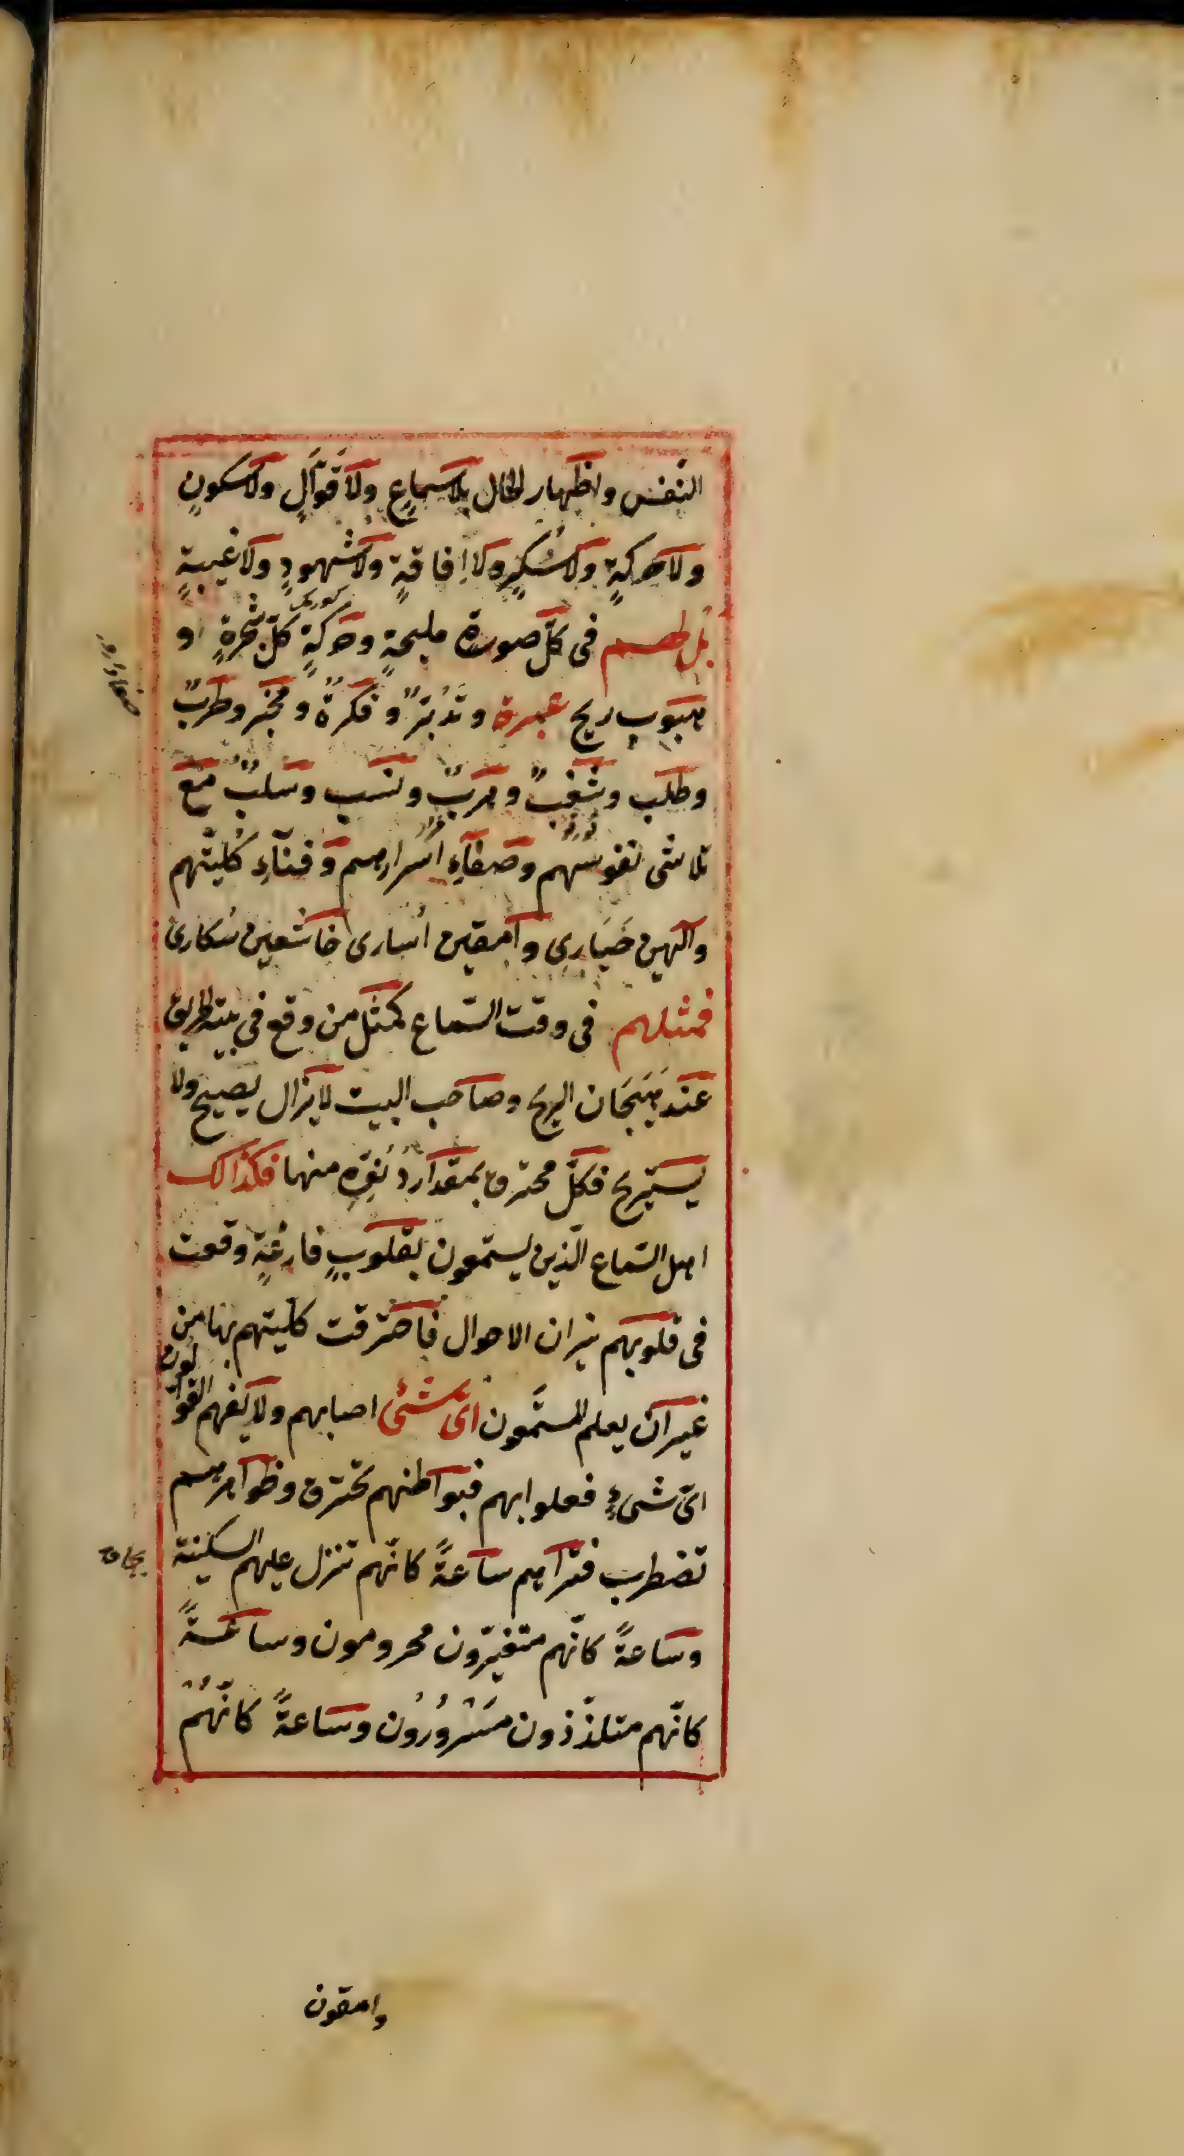 النّفس واظهار الحال بلا سماعٍ ولا قَوّالٍ ولا سكونٍ
ولا حركةٍ ولا سُكرٍ ولا اِفاقةٍ ولا شهودٍ ولا غيبةٍ
بل لهم فى كلّ صورة مليحةٍ وحركةٍ كلّ شجرةٍ او
بهبوب ريح عبرة وتدبّرٌ وفكرةٌ و وطربٌ
وطلب وشغبٌ وهربٌ ونسب وسلبٌ مع
تلاشى نفوسهم وصفآءِ اسرارهم وفنآءِ كُليّتهم
والهين حَيَارى وامقين اُسارى خاشعين سُكارى
فمثلهم فى وقت السّماع كمثل من وقع فى بيته الحريق
عند هَيَجَان الريح وصاحب البيت لا يزال يصيح ولا
يستريح فكلّ محترق بمقدار دُنوّهِ منها فكذالك
اهل السّماع الّذين يستمعون بقلوبٍ فارغةٍ وقعت
فى قلوبهم نيران الاحوال فاحترقت كليّتهم بها من
غير ان يعلم المستمعون اىّ شئ اصابهم ولا يفهم القوّالون
اىّ شىءٍ فعلوا بهم فبواطنهم تحترق وظواهرهم
تضطرب فتراهم ساعةً كانّهم تنزل عليهم السكينة
وساعةً كانّهم متغيّرون محرومون وساعةً
كانّهم متلذّذون مَسْرُورُون وساعةً كانّهُمْ
وامقون